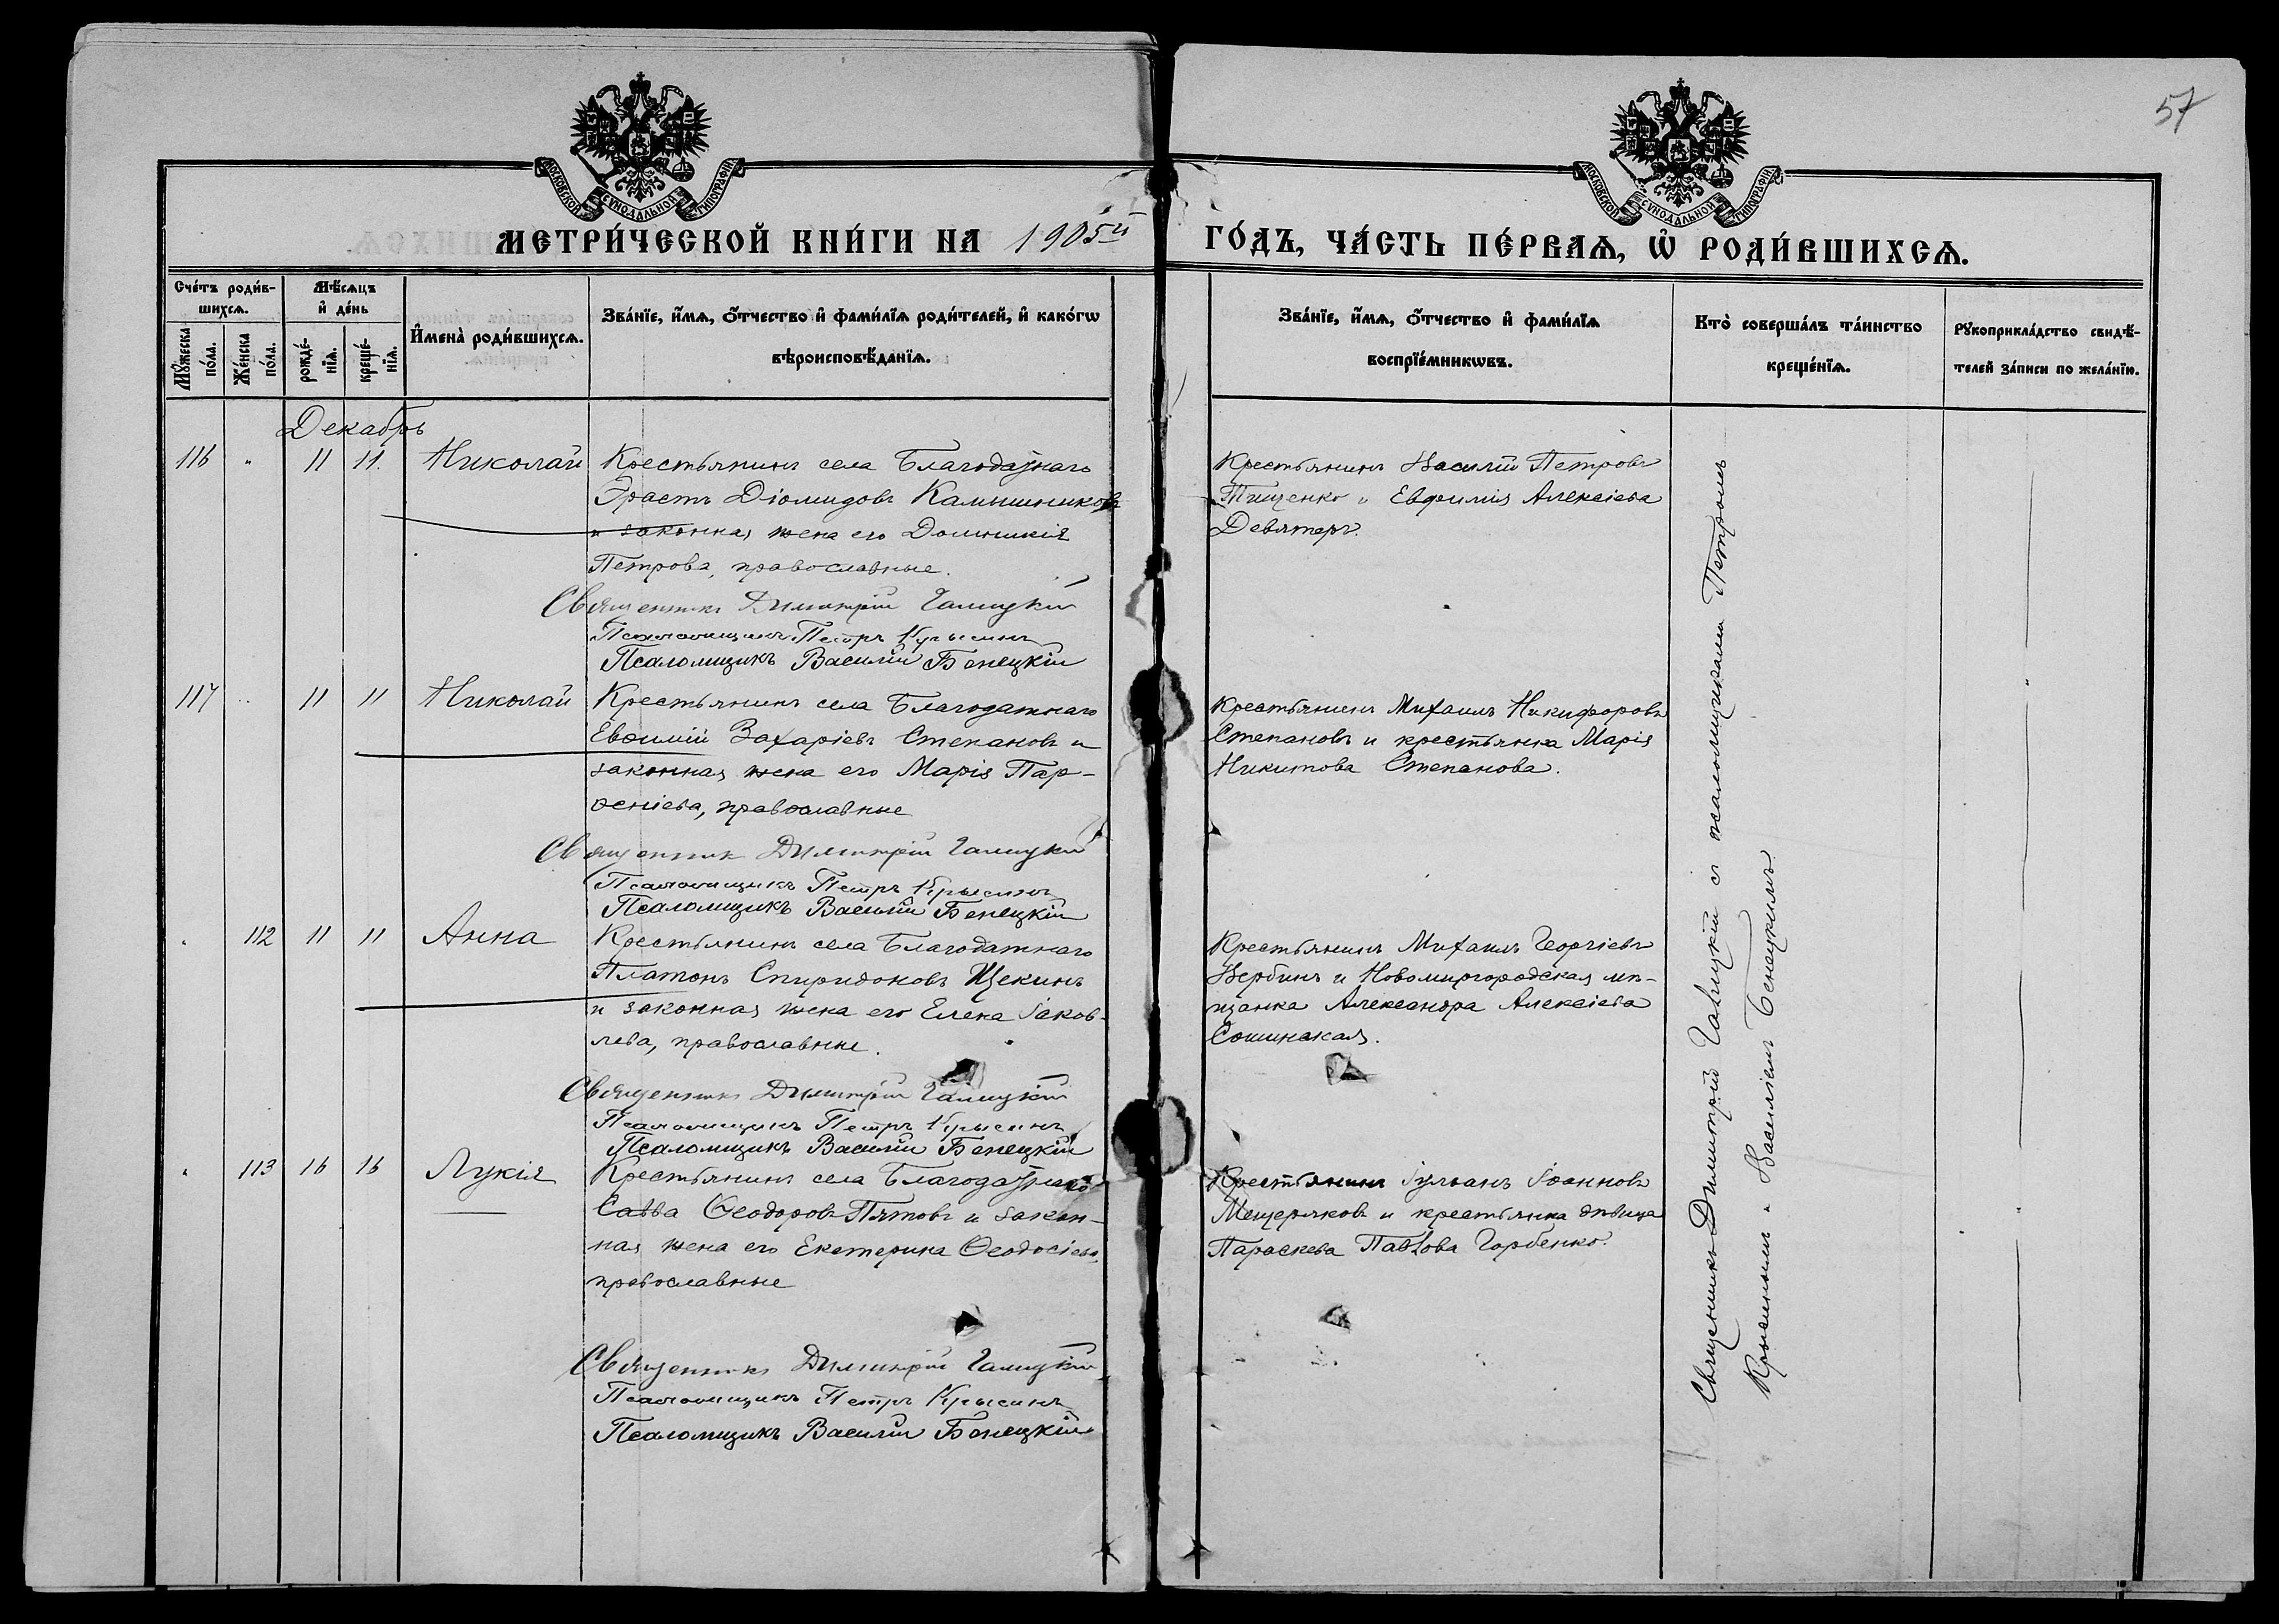 57
МОСКОВСКОЙ СѴНОДАЛЬНОЙ ТИПОГРАФІИ
МОСКОВСКОЙ СѴНОДАЛЬНОЙ ТИПОГРАФІИ
МЕТРИ́ЧЕСКОЙ КНИ́ГИ НА 1905й ГО́ДЪ, ЧА́СТЬ ПЕ́РВАѦ, Ѡ҆ РОДИ́ВШИХСѦ.
Сче́тъ роди́в-
шихсѧ.
Мꙋ́жеска по́ла.
Же́нска по́ла.
Мѣ́сѧцъ
и҆ де́нь
рожде́-
нїѧ.
креще́-
нїѧ.
И҆мена̀ роди́вшихсѧ.
Зва́нїе, и҆́мѧ, ѻ҆́тчество и҆ фами́лїѧ роди́телей, и҆ како́гѡ
вѣроисповѣ́данїѧ.
Зва́нїе, и҆́мѧ, ѻ҆́тчество и҆ фами́лїѧ
воспрїе́мникѡвъ.
Кто̀ соверша́лъ та́инство
креще́нїѧ.
Рꙋкоприкла́дство свидѣ́-
телей за́писи по жела́нїю.
Декабрь
116 " 11 11. Николай
Крестьянинъ села Благодатнаго
Эрастъ Діомидовъ Камышниковъ
и законная жена его Домникія
Петрова, православные.
Священникъ Димитрій Галицкій
Псаломщикъ Петръ Крысинъ
Псаломщикъ Василій Бенецкій
Крестьянинъ Василій Петровъ
Тищенко и Евфимія Алексіева
Девятеръ.
117 " 11 11 Николай
Крестьянинъ села Благодатнаго
Евѳимій Захаріевъ Степановъ и
законная жена его Марія Пар-
ѳеніева, православные
Священникъ Димитрій Галицкій
Псаломщикъ Петръ Крысинъ
Псаломщикъ Василій Бенецкій
Крестьянинъ Михаилъ Никифоровъ
Степановъ и крестьянка Марія
Никитова Степанова.
" 112 11 11 Анна
Крестьянинъ села Благодатнаго
Платонъ Спиридоновъ Щекинъ
и законная жена его Елена Іаков-
лева, православные.
Священникъ Димитрій Галицкій
Псаломщикъ Петръ Крысинъ
Псаломщикъ Василій Бенецкій
Крестьянинъ Михаилъ Георгіевъ
Вербинъ и Новомиргородская мѣ-
щанка Александра Алексіева
" 113 16 16 Лукія
Крестьянинъ села Благодатнаго
Савва Ѳеодоровъ Пятовъ и закон-
ная жена его Екатерина Ѳеодосіева,
православные
Священникъ Димитрій Галицкій
Псаломщикъ Петръ Крысинъ
Псаломщикъ Василій Бенецкій
Крестьянинъ Іуліанъ Іоанновъ
Мещеряковъ и крестьянка дѣвица
Параскева Павлова Горбенко.
Священникъ Димитрій Галицкій съ псаломщиками Петромъ
Крысинымъ и Василіемъ Бенецкимъ